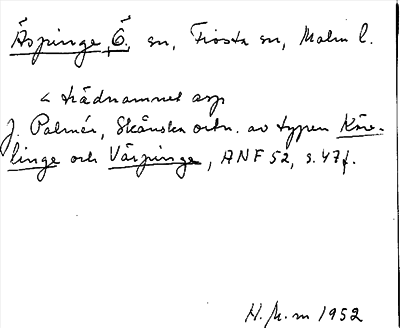 Äspinge, Ö. sn, Frosta sn, Malm l.
< trädnamnet asp
J. Palmér, Skånska ortn. av typen Käve-
linge och Värpinge, ANF 52, s. 47f.
H. M-m 1952